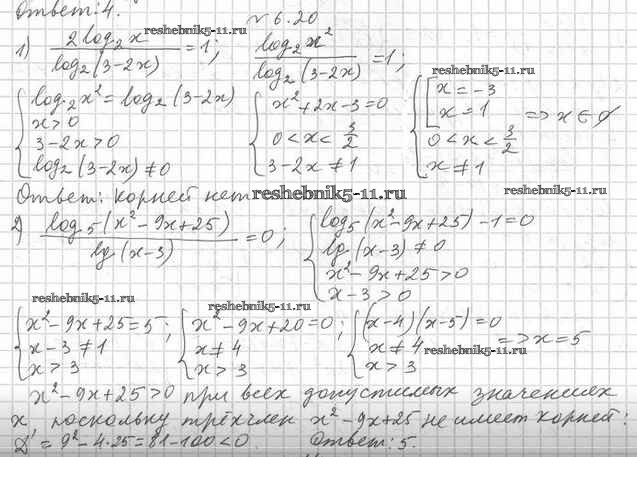 Ответ: 4.
№ 6.20
reshebnik5-11.ru
1) 2 log₂ x / log₂ (3-2x) = 1; log₂ x² / log₂ (3-2x) = 1;
reshebnik5-11.ru
{ log₂ x² = log₂ (3-2x) { x² + 2x - 3 = 0 { [ x = -3
x > 0 0 < x < 3/2 x = 1 => x ∈ ∅
3-2x > 0 3-2x ≠ 1 0 < x < 3/2
log₂ (3-2x) ≠ 0 x ≠ 1
Ответ: корней нет
reshebnik5-11.ru
reshebnik5-11.ru
2) log₅ (x² - 9x + 25) / lg (x-3) = 0; { log₅ (x² - 9x + 25) - 1 = 0
lg (x-3) ≠ 0
x² - 9x + 25 > 0
x - 3 > 0
reshebnik5-11.ru
reshebnik5-11.ru
{ x² - 9x + 25 = 5; { x² - 9x + 20 = 0; { (x-4)(x-5) = 0
x - 3 ≠ 1 x ≠ 4 x ≠ 4 => x = 5
x > 3 x > 3 x > 3
reshebnik5-11.ru
x² - 9x + 25 > 0 при всех допустимых значениях
x, поскольку трёхчлен x² - 9x + 25 не имеет корней:
D = 9² - 4·25 = 81 - 100 < 0. Ответ: 5.